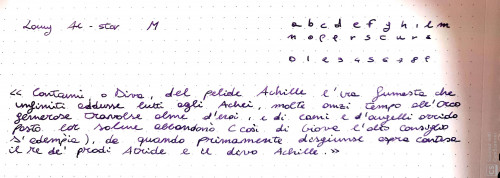 Lamy Al-star M
a b c d e f g h i l m
n o p q r s t u v z
0 1 2 3 4 5 6 7 8 9
« Cantami, o Diva, del pelide Achille l'ira funesta che
infiniti addusse lutti agli Achei, molte anzi tempo all'Orco
generose travolse alme d'eroi, e di cani e d'augelli orrido
pasto lor salme abbandonò (così di Giove l'alto consiglio
s'adempìa), da quando primamente disgiunse aspra contesa
il re de' prodi Atride e il divo Achille.»